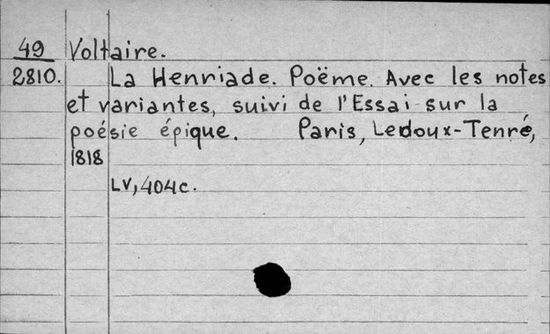 49 Voltaire.
2810. La Henriade. Poëme. Avec les notes
et variantes, suivi de l'Essai sur la
poésie épique. Paris, Ledoux-Tenré,
1818
LV, 404 c.